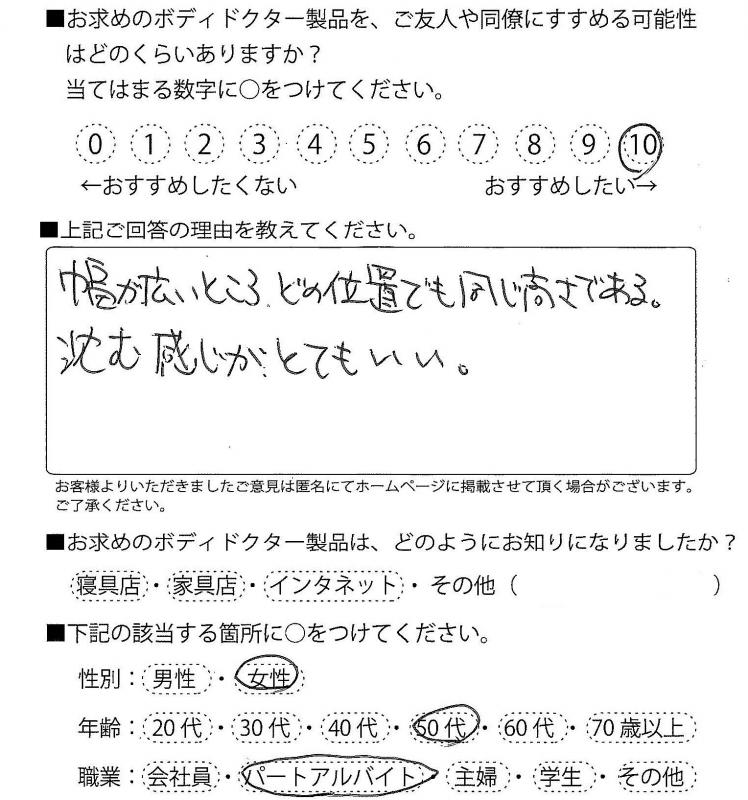 ■お求めのボディドクター製品を、ご友人や同僚にすすめる可能性
はどのくらいありますか？
当てはまる数字に○をつけてください。
0 1 2 3 4 5 6 7 8 9 10
←おすすめしたくない おすすめしたい→
■上記ご回答の理由を教えてください。
巾幅が広いところ、どの位置でも同じ高さである。
沈む感じが、とてもいい。
お客様よりいただきましたご意見は匿名にてホームページに掲載させて頂く場合がございます。
ご了承ください。
■お求めのボディドクター製品は、どのようにお知りになりましたか？
寝具店・家具店・インタネット・その他（ ）
■下記の該当する箇所に○をつけてください。
性別：男性・女性
年齢：20代・30代・40代・50代・60代・70歳以上
職業：会社員・パートアルバイト・主婦・学生・その他